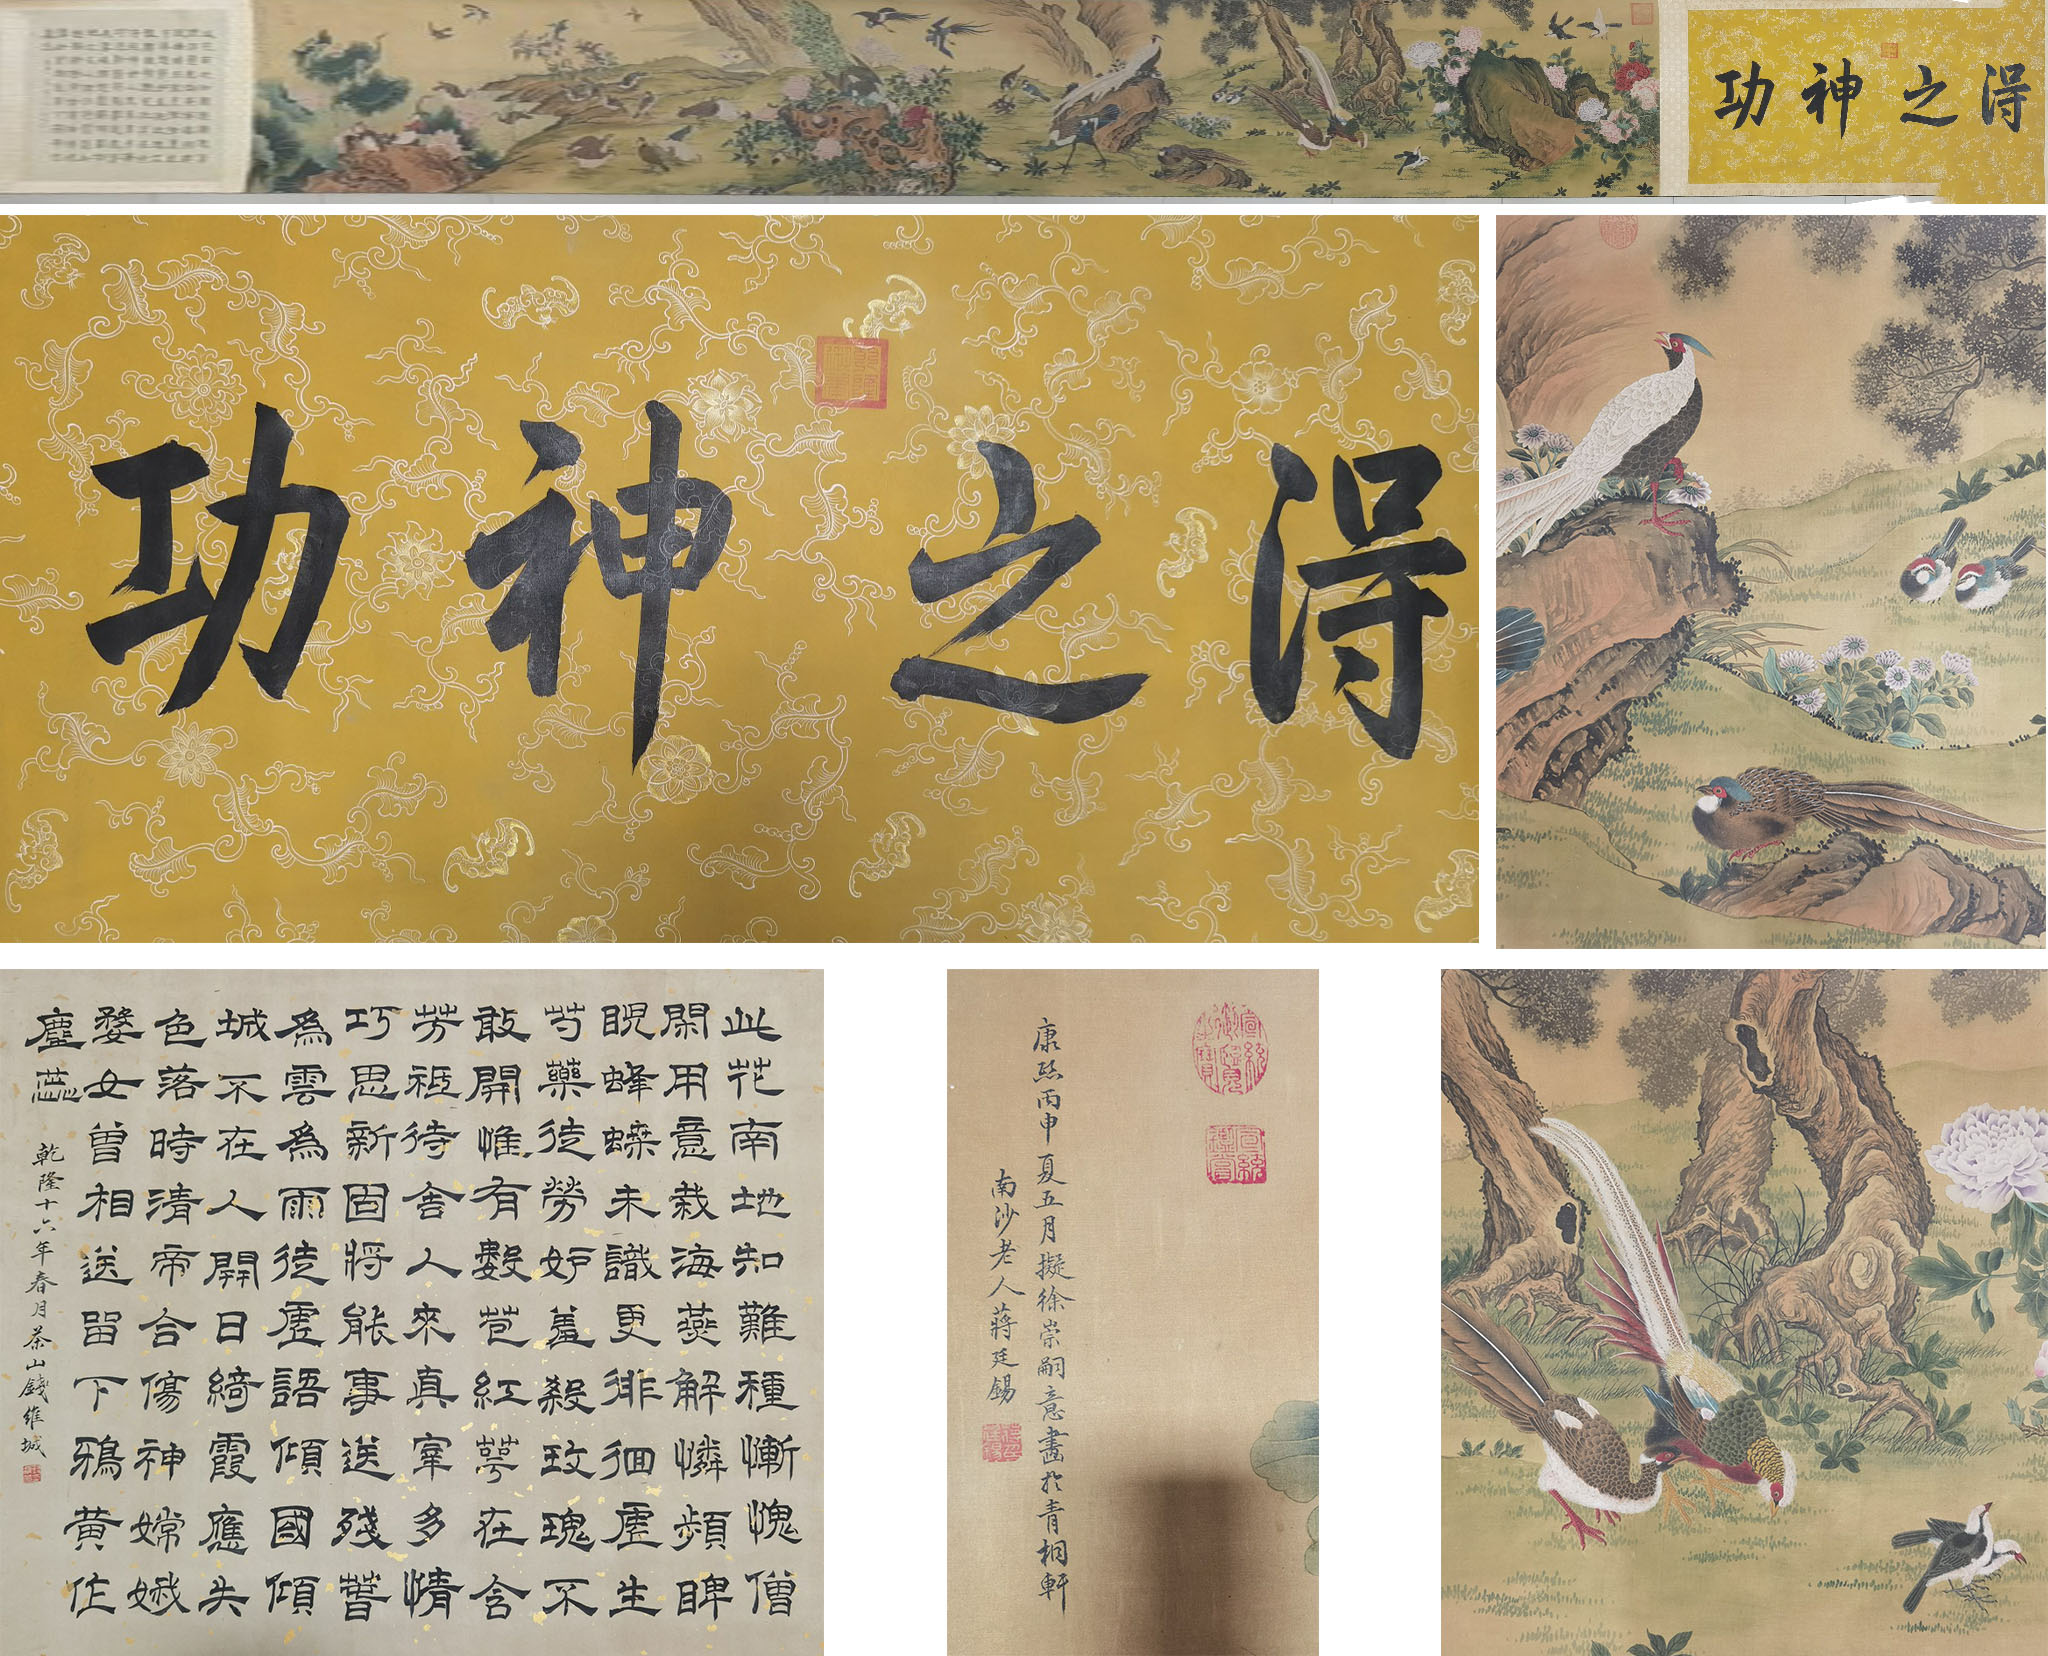 得之神功
得之神功
此花南地知難種慚愧僧
閑用意栽海燕解憐頻睥
睨蜂蠂未識更徘徊虛生
芍藥徒勞妒羞殺玫瑰不
敢開惟有數苞紅萼在含
芳秪待舍人來真宰多情
巧思新固將能事送殘春
為雲為雨徒虛語傾國傾
城不在人開日綺霞應失
色落時清帝合傷神嫦娥
婺女曾相送留下鴉黃作
塵蕊
乾隆十六年春月茶山錢維城
宣統御覽之寶
宣統鑑賞
康熙丙申夏五月擬徐崇嗣意畫於青桐軒
南沙老人蔣廷錫